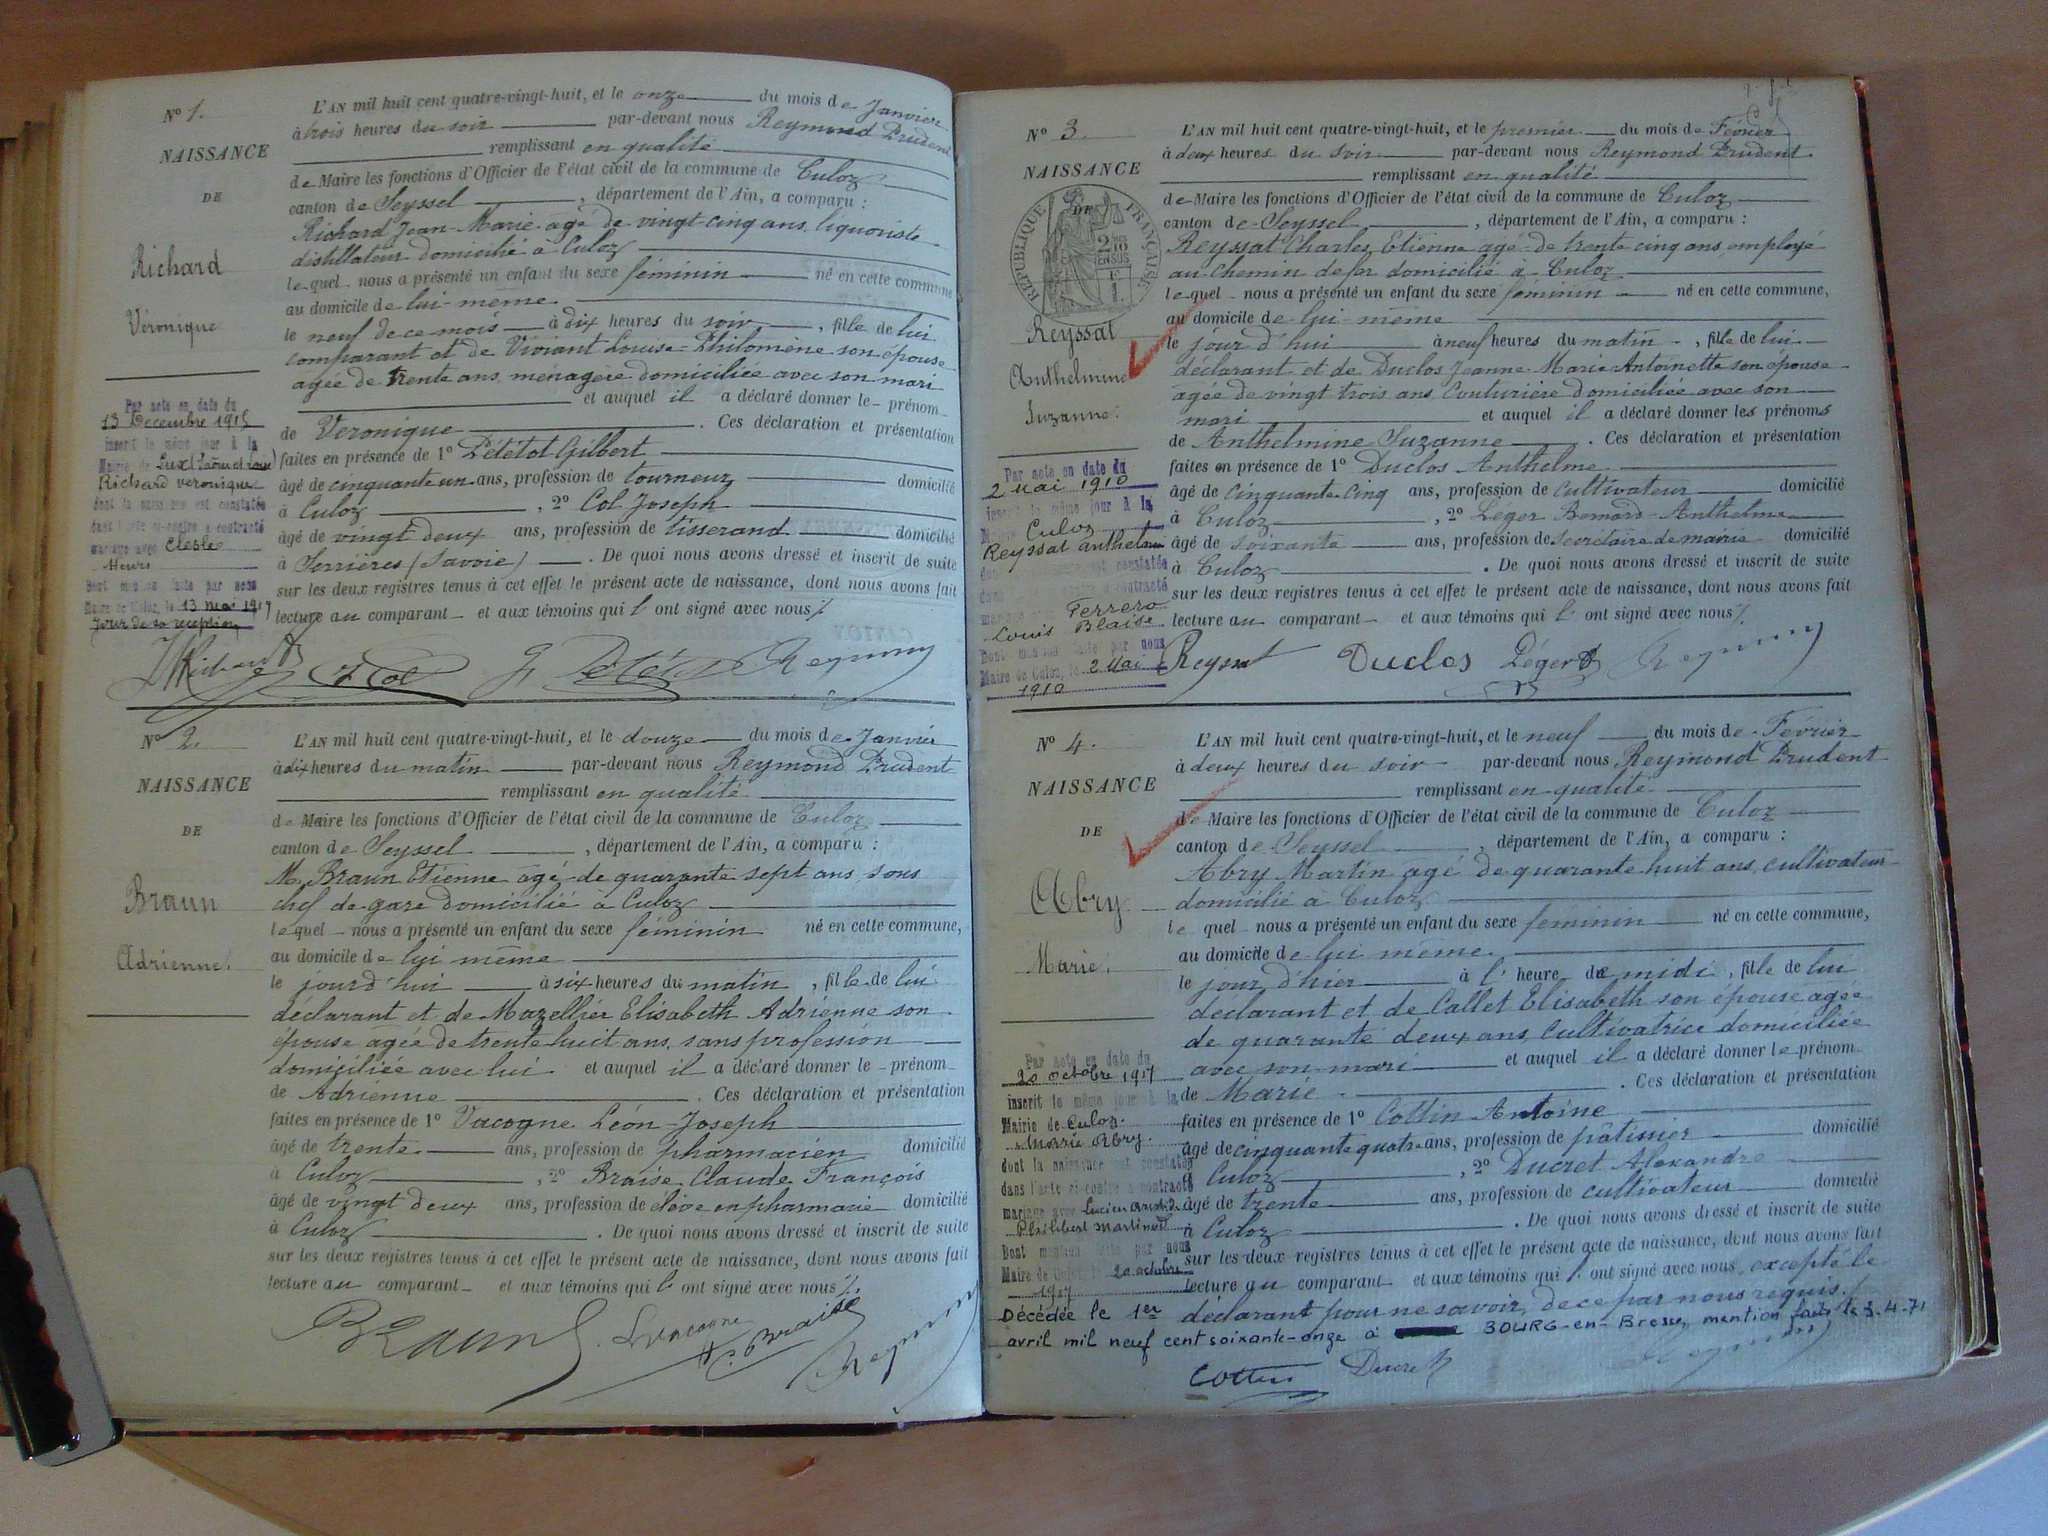 N° 1.
NAISSANCE
DE
Richard
Véronique
Par acte en date du
13 Décembre 1915
inscrit le même jour à la
Mairie de Lux (Saône et Loire)
Richard Veronique
dont la naissance est constatée
dans l'acte ci-contre a contracté
mariage avec Clesle
Henri
Dont mention faite par nous
Maire de Culoz, le 13 mai 1917
jour de sa reception
L'AN mil huit cent quatre-vingt-huit, et le onze du mois de Janvier
à trois heures du soir par-devant nous Reymond Prudent
remplissant en qualité
de Maire les fonctions d'Officier de l'état civil de la commune de Culoz
canton de Seyssel, département de l'Ain, a comparu :
Richard Jean-Marie agé de vingt-cinq ans, liquoriste
distillateur domicilié à Culoz
lequel nous a présenté un enfant du sexe féminin né en cette commune
au domicile de lui-même
le neuf de ce mois à dix heures du soir, fille de lui
comparant et de Viviant Louise-Philomène son épouse
agée de trente ans ménagère domiciliée avec son mari
et auquel il a déclaré donner le prénom
de Veronique. Ces déclaration et présentation
faites en présence de 1° Pététot Gilbert
âgé de cinquante un ans, profession de tourneur domicilié
à Culoz, 2° Col Joseph
âgé de vingt deux ans, profession de tisserand domicilié
à Serrières (Savoie). De quoi nous avons dressé et inscrit de suite
sur les deux registres tenus à cet effet le présent acte de naissance, dont nous avons fait
lecture au comparant et aux témoins qui l'ont signé avec nous
J Richard J Col G Pététot Reymond
N° 2.
NAISSANCE
DE
Braun
Adrienne.
L'AN mil huit cent quatre-vingt-huit, et le douze du mois de Janvier
à dix heures du matin par-devant nous Reymond Prudent
remplissant en qualité
de Maire les fonctions d'Officier de l'état civil de la commune de Culoz
canton de Seyssel, département de l'Ain, a comparu :
M. Braun Etienne agé de quarante sept ans sous
chef de gare domicilié à Culoz
lequel nous a présenté un enfant du sexe féminin né en cette commune,
au domicile de lui même
le jourd'hui à six heures du matin, fille de lui
déclarant et de Mazellier Elisabeth Adrienne son
épouse agée de trente huit ans, sans profession
domiciliée avec lui et auquel il a déclaré donner le prénom
de Adrienne. Ces déclaration et présentation
faites en présence de 1° Vacogne Léon-Joseph
âgé de trente ans, profession de pharmacien domicilié
à Culoz, 2° Braise Claude François
âgé de vingt deux ans, profession de élève en pharmacie domicilié
à Culoz. De quoi nous avons dressé et inscrit de suite
sur les deux registres tenus à cet effet le présent acte de naissance, dont nous avons fait
lecture au comparant et aux témoins qui l'ont signé avec nous
Braun L Vacogne C. Braise Reymond
N° 3.
NAISSANCE
DE
RÉPUBLIQUE FRANÇAISE
Reyssat
Anthelmine
Suzanne.
Par acte en date du
2 Mai 1910
inscrit le même jour à la
Mairie Culoz
Reyssat anthelmine
dont la naissance est constatée
dans l'acte ci-contre a contracté
mariage avec Ferrero
Louis Blaise
Dont mention faite par nous
Maire de Culoz, le 2 Mai
1910
L'AN mil huit cent quatre-vingt-huit, et le premier du mois de Février
à deux heures du soir par-devant nous Reymond Prudent
remplissant en qualité
de Maire les fonctions d'Officier de l'état civil de la commune de Culoz
canton de Seyssel, département de l'Ain, a comparu :
Reyssat Charles, Etienne agé de trente cinq ans, employé
au chemin de fer domicilié à Culoz
lequel nous a présenté un enfant du sexe féminin né en cette commune,
au domicile de lui même
le jour d'hui à neuf heures du matin, fille de lui
déclarant et de Duclos Jeanne-Marie-Antoinette son épouse
agée de vingt trois ans, couturière domiciliée avec son
mari et auquel il a déclaré donner les prénoms
de Anthelmine Suzanne. Ces déclaration et présentation
faites en présence de 1° Duclos Anthelme
âgé de cinquante-cinq ans, profession de cultivateur domicilié
à Culoz, 2° Léger Bernard-Anthelme
âgé de soixante ans, profession de secrétaire de mairie domicilié
à Culoz. De quoi nous avons dressé et inscrit de suite
sur les deux registres tenus à cet effet le présent acte de naissance, dont nous avons fait
lecture au comparant et aux témoins qui l'ont signé avec nous
Reyssat Duclos Léger Reymond
N° 4.
NAISSANCE
DE
Abry
Marie.
Par acte en date du
20 octobre 1917
inscrit le même jour à la
Mairie de Culoz.
Marie Abry.
dont la naissance est constatée
dans l'acte ci-contre a contracté
mariage avec Lucien Aristide
Philibert Martinod
Dont mention faite par nous
Maire de Culoz, le 20 octobre
1917
L'AN mil huit cent quatre-vingt-huit, et le neuf du mois de Février
à deux heures du soir par-devant nous Reymond Prudent
remplissant en qualité
de Maire les fonctions d'Officier de l'état civil de la commune de Culoz
canton de Seyssel, département de l'Ain, a comparu :
Abry Martin agé de quarante huit ans, cultivateur
domicilié à Culoz
lequel nous a présenté un enfant du sexe féminin né en cette commune,
au domicile de lui même
le jour d'hier à l'heure de midi, fille de lui
déclarant et de Callet Elisabeth son épouse agée
de quarante deux ans, cultivatrice domiciliée
avec son mari et auquel il a déclaré donner le prénom
de Marie. Ces déclaration et présentation
faites en présence de 1° Cottin Antoine
âgé de cinquante quatre ans, profession de pâtissier domicilié
à Culoz, 2° Ducret Alexandre
âgé de trente ans, profession de cultivateur domicilié
à Culoz. De quoi nous avons dressé et inscrit de suite
sur les deux registres tenus à cet effet le présent acte de naissance, dont nous avons fait
lecture au comparant et aux témoins qui l'ont signé avec nous, excepté le
déclarant pour ne savoir, de ce par nous requis.
Décédée le 1er
avril mil neuf cent soixante-onze à BOURG-en-Bresse, mention faite le 3.4.71
Cottin Ducret Reymond